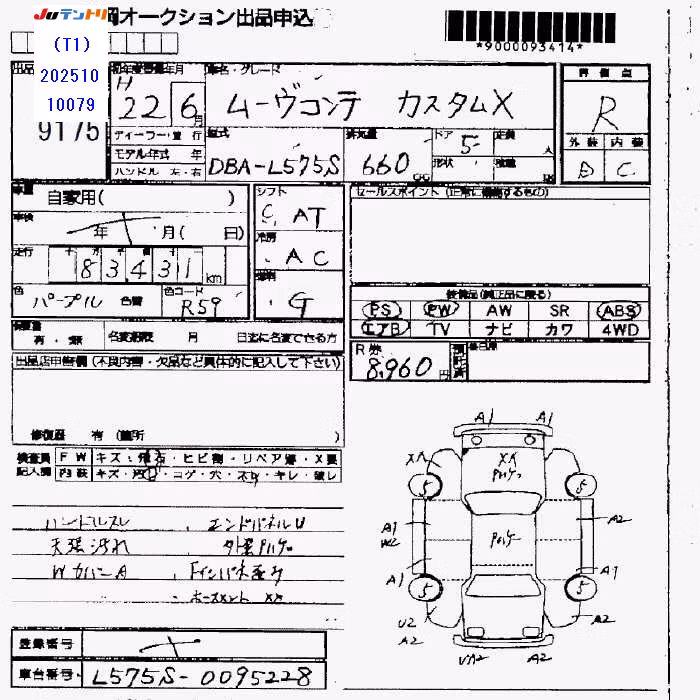 Juテントリ
オークション出品申込
*9000093414*
(T1)
202510
10079
9175
初年度登録年月
H
22 6月
車名・グレード
ムーヴコンテ カスタムX
評価点
R
外装 内装
D C
ディーラー・並行
モデル年式 年
ハンドル 左・右
型式
DBA-L575S
排気量
660
CC
ドア
5
形状
定員
人
積載
車歴
自家用( )
車検
年 月( 日)
走行
1 8 3 4 3 1 km
色
パープル 色替
色コード
R59
シフト
C, AT
冷房
AC
燃料
G
セールスポイント (正常に機能するもの)
装備品(純正品に限る)
PS PW AW SR ABS
エアB TV ナビ カワ 4WD
有・無 名変期限 月 日迄に名変できる方
R券
8,960円
預託済
出品店申告欄(不良内容・欠品など具体的に記入して下さい)
修復歴 有 (箇所 )
検査員
記入欄
FW キズ・飛石・ヒビ割・リペア跡・X要
内装 キズ・汚れ・コゲ・穴・ネジ・キレ・破レ
ハンドルスレ エンドパネルU
天張汚れ 外装Pハゲ
Wカバー A Fインパネ歪み
ホースメント XX
A1 A1
XA XA
Pハゲ
5 5
A1 A2
W2
Pハゲ
A1 A1
5 5
U2 A2
A2
UA2 A2
登録番号
車台番号 L575S-0095228